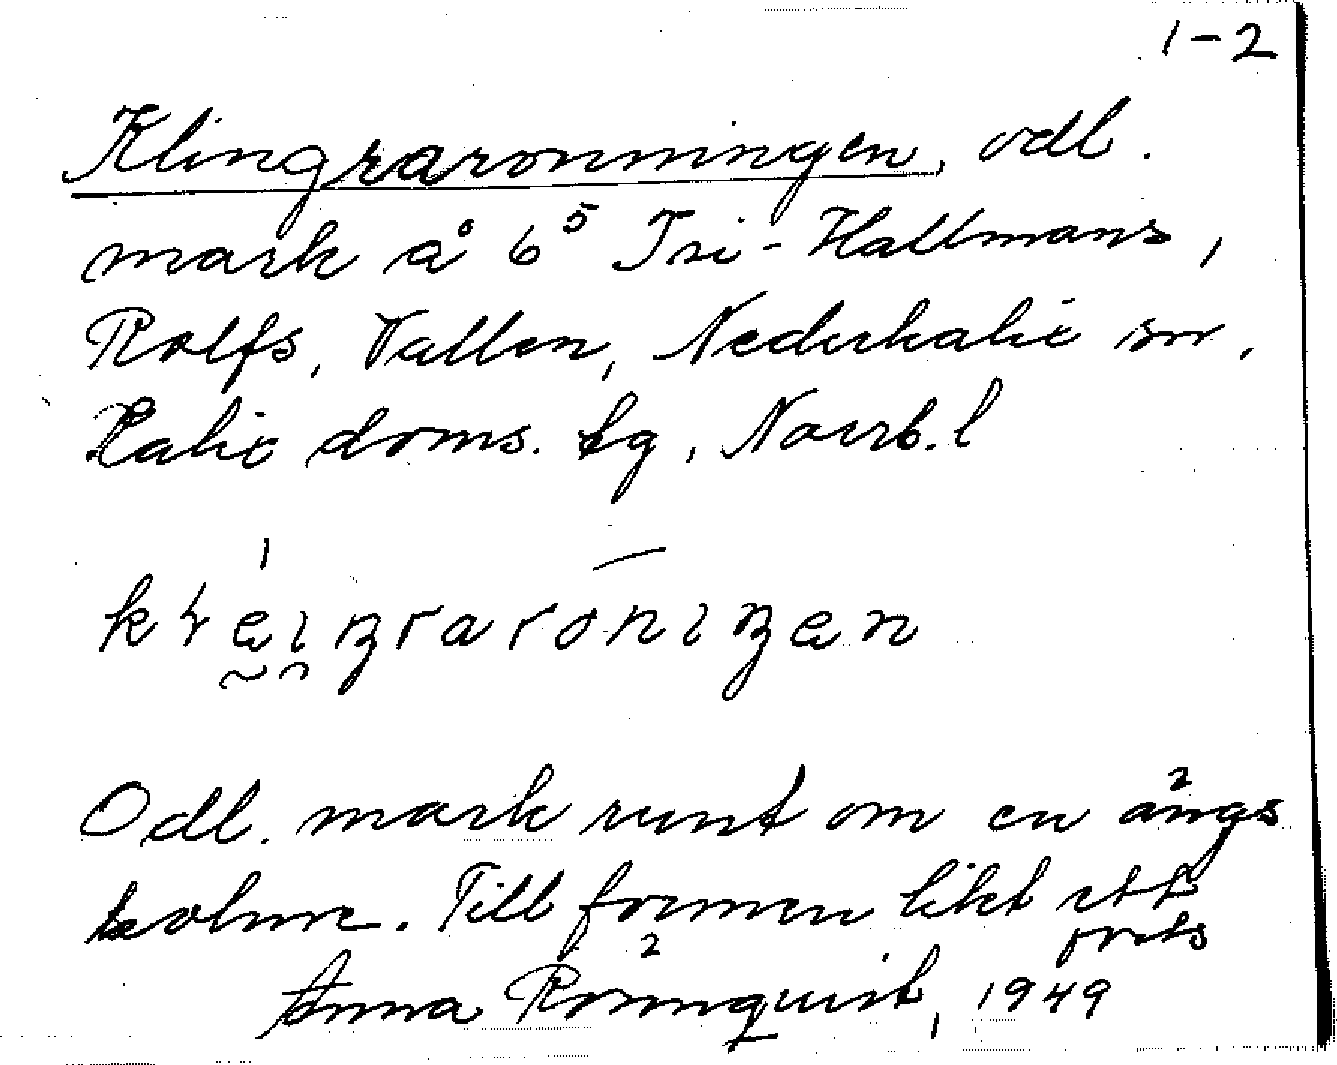 1-2
Klingraronningen, odl.
mark å 6⁵ Tri-Hallmans,
Rolfs, Vallen, Nederkalix sn,
Kalix doms. tg, Norrb. l
Odl. mark runt om en ängs
holme. Till formen likt ett
Anna Rönnquist, 1949